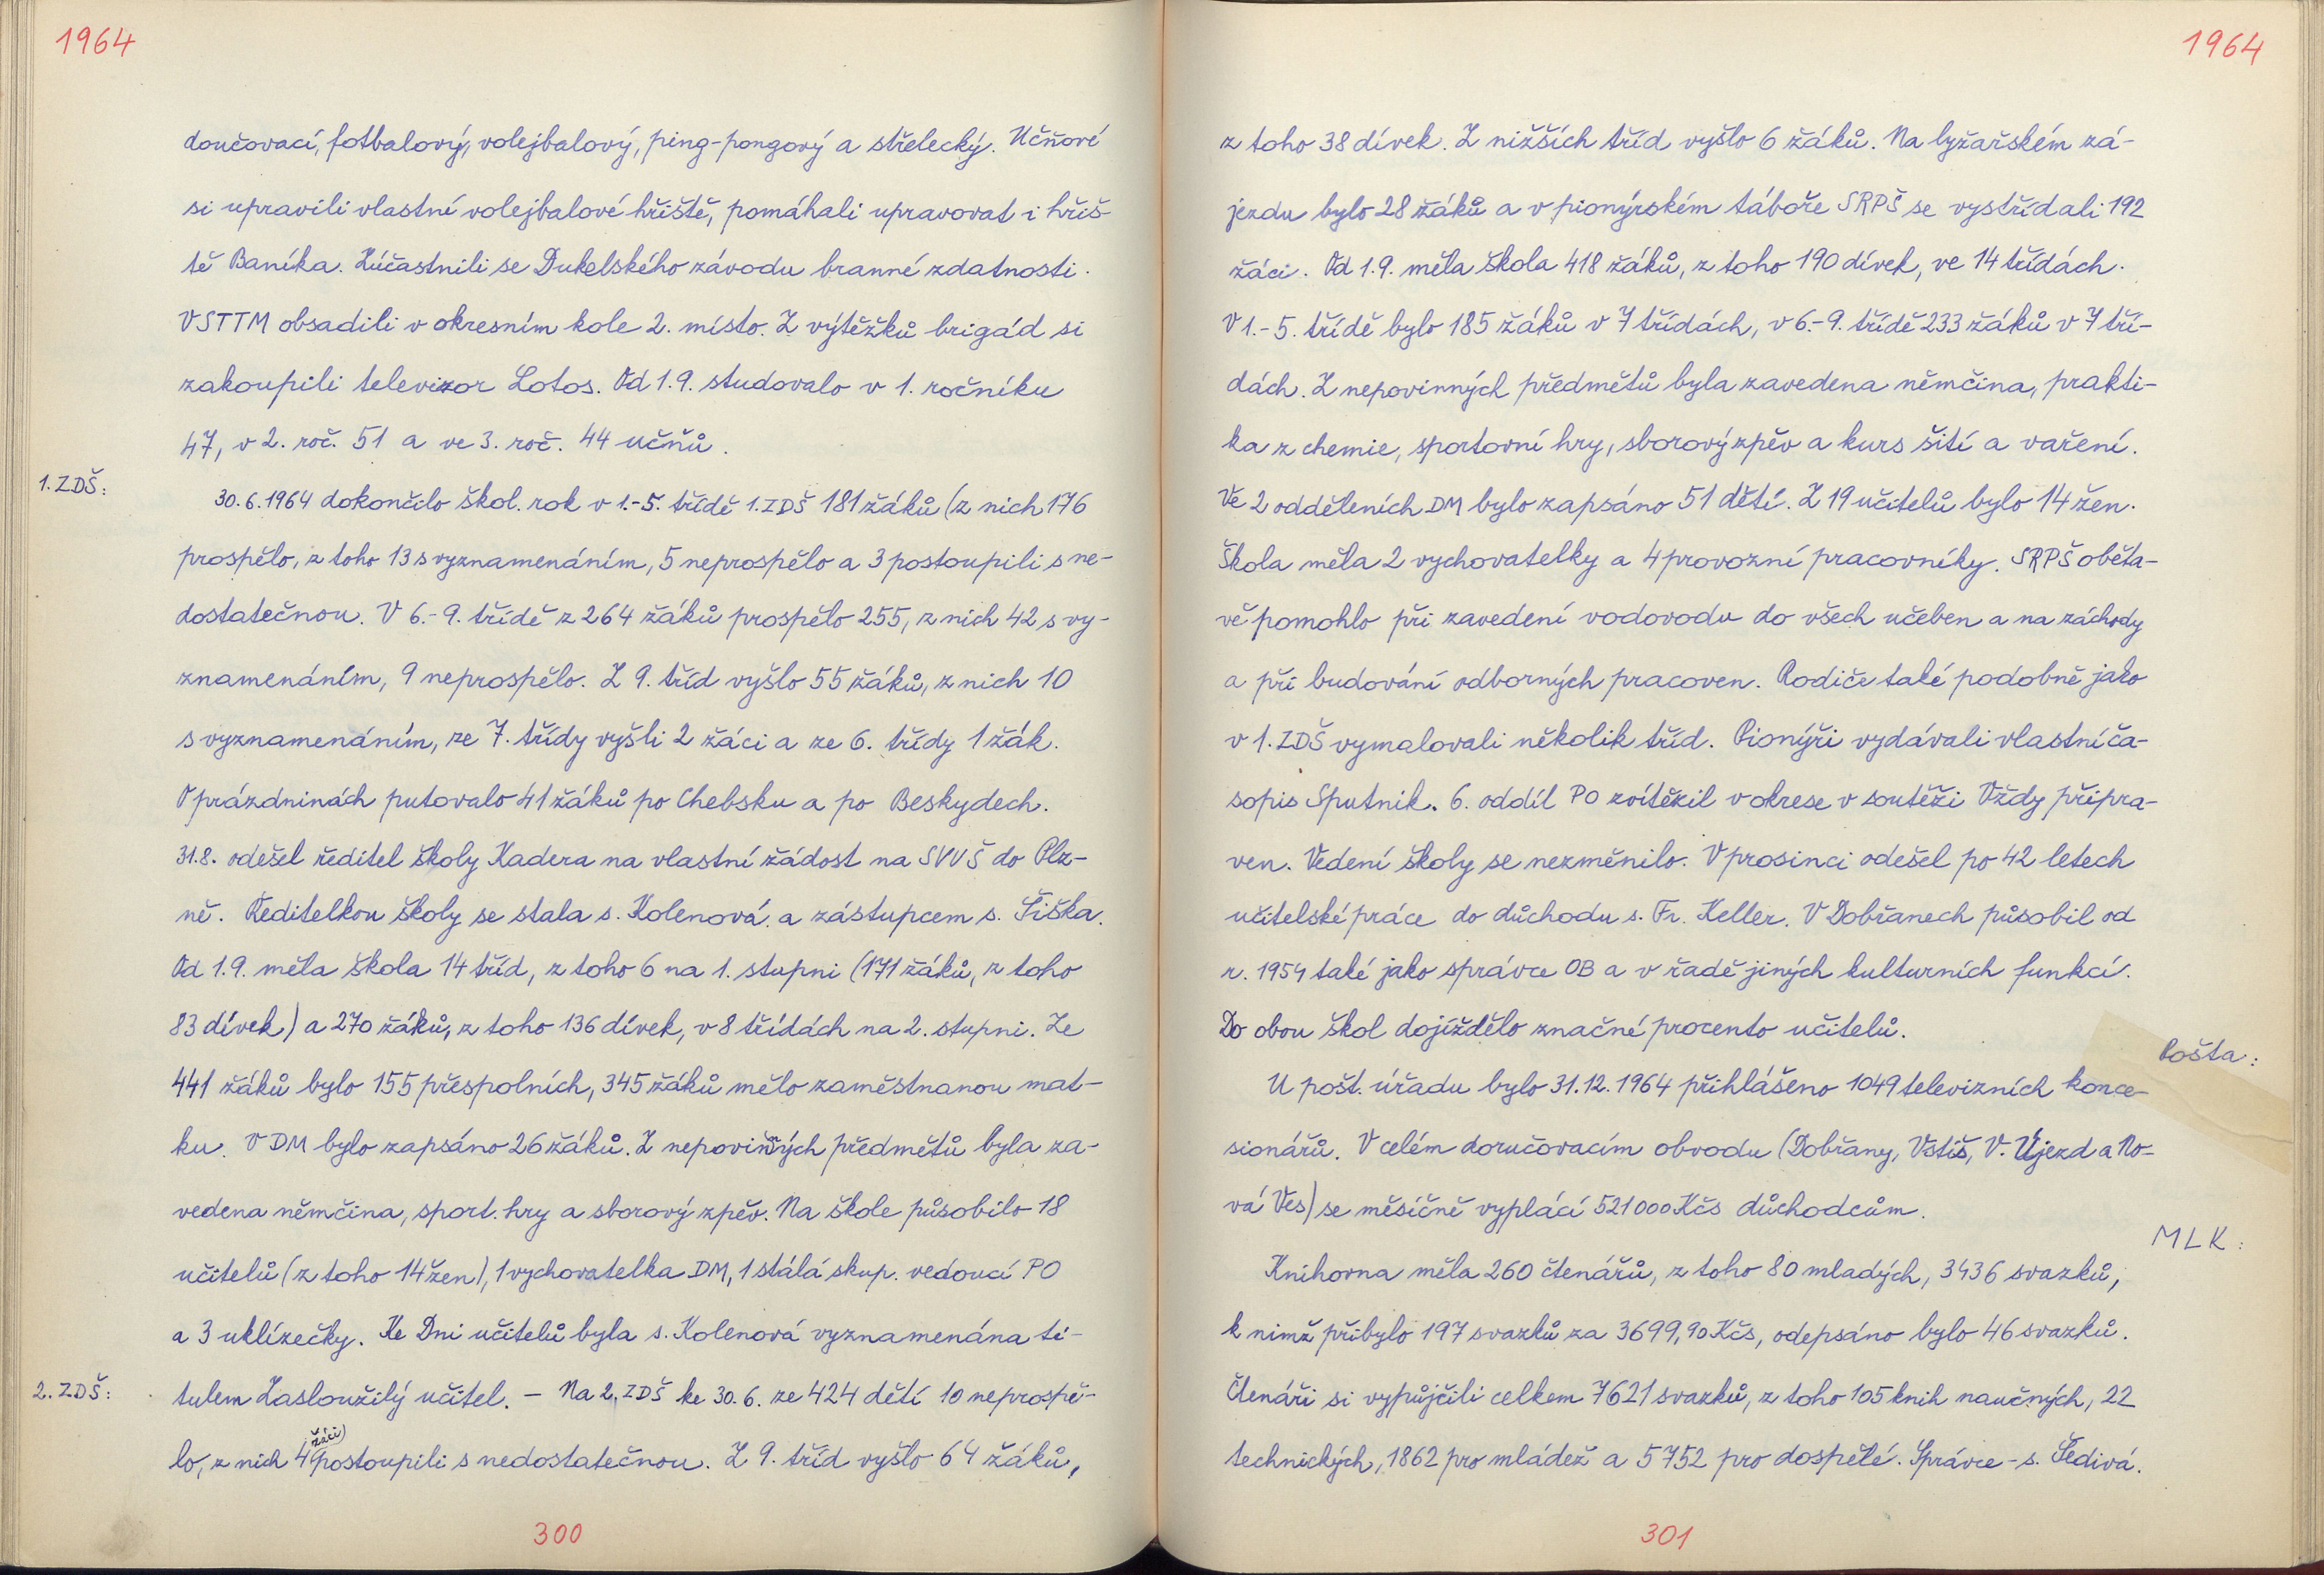 1964
doučovací, fotbalový, volejbalový, ping-pongový a střelecký. Učňové
si upravili vlastní volejbalové hřiště, pomáhali upravovat i hřiš-
tě Baníka. Zúčastnili se Dukelského závodu branné zdatnosti.
V STTM obsadili v okresním kole 2. místo. Z výtěžků brigád si
zakoupili televizor Lotos. Od 1.9. studovalo v 1. ročníku
47, v 2. roč. 51 a ve 3. roč. 44 učňů.
1. ZDŠ:
30.6.1964 dokončilo škol. rok v 1.-5. třídě 1. ZDŠ 181 žáků (z nich 176
prospělo, z toho 13 s vyznamenáním, 5 neprospělo a 3 postoupili s ne-
dostatečnou. V 6.-9. třídě z 264 žáků prospělo 255, z nich 42 s vy-
znamenáním, 9 neprospělo. Z 9. tříd vyšlo 55 žáků, z nich 10
s vyznamenáním, ze 7. třídy vyšli 2 žáci a ze 6. třídy 1 žák.
O prázdninách putovalo 41 žáků po Chebsku a po Beskydech.
31.8. odešel ředitel školy Kadera na vlastní žádost na SVVŠ do Plz-
ně. Ředitelkou školy se stala s. Kolenová a zástupcem s. Šiška.
Od 1.9. měla škola 14 tříd, z toho 6 na 1. stupni (171 žáků, z toho
83 dívek) a 270 žáků, z toho 136 dívek, v 8 třídách na 2. stupni. Ze
441 žáků bylo 155 přespolních, 345 žáků mělo zaměstnanou mat-
ku. V DM bylo zapsáno 26 žáků. Z nepovinných předmětů byla za-
vedena němčina, sport. hry a sborový zpěv. Na škole působilo 18
učitelů (z toho 14 žen), 1 vychovatelka DM, 1 stálá skup. vedoucí PO
a 3 uklízečky. Ke Dni učitelů byla s. Kolenová vyznamenána ti-
2. ZDŠ:
tulem Zasloužilý učitel. - Na 2. ZDŠ ke 30.6. ze 424 dětí 10 neprospě-
lo, z nich 4 žáci postoupili s nedostatečnou. Z 9. tříd vyšlo 64 žáků,
300
1964
z toho 38 dívek. Z nižších tříd vyšlo 6 žáků. Na lyžařském zá-
jezdu bylo 28 žáků a v pionýrském táboře SRPŠ se vystřídali 192
žáci. Od 1.9. měla škola 418 žáků, z toho 190 dívek, ve 14 třídách.
V 1.-5. třídě bylo 185 žáků v 7 třídách, v 6.-9. třídě 233 žáků v 7 tří-
dách. Z nepovinných předmětů byla zavedena němčina, prakti-
ka z chemie, sportovní hry, sborový zpěv a kurs šití a vaření.
Ve 2 odděleních DM bylo zapsáno 51 dětí. Z 19 učitelů bylo 14 žen.
Škola měla 2 vychovatelky a 4 provozní pracovníky. SRPŠ oběta-
vě pomohlo při zavedení vodovodu do všech učeben a na záchody
a při budování odborných pracoven. Rodiče také podobně jako
v 1. ZDŠ vymalovali několik tříd. Pionýři vydávali vlastní ča-
sopis Sputnik. 6. oddíl PO zvítězil v okrese v soutěži Vždy připra-
ven. Vedení školy se nezměnilo. V prosinci odešel po 42 letech
učitelské práce do důchodu s. Fr. Keller. V Dobřanech působil od
r. 1954 také jako správce OB a v řadě jiných kulturních funkcí.
Do obou škol dojíždělo značné procento učitelů.
Pošta:
U pošt. úřadu bylo 31.12.1964 přihlášeno 1049 televizních konce-
sionářů. V celém doručovacím obvodu (Dobřany, Vstiš, V. Újezd a No-
vá Ves) se měsíčně vyplácí 521000 Kčs důchodcům.
MLK:
Knihovna měla 260 čtenářů, z toho 80 mladých, 3436 svazků,
k nimž přibylo 197 svazků za 3699,90 Kčs, odepsáno bylo 46 svazků.
Čtenáři si vypůjčili celkem 7621 svazků, z toho 105 knih naučných, 22
technických, 1862 pro mládež a 5752 pro dospělé. Správce - s. Šedivá.
301